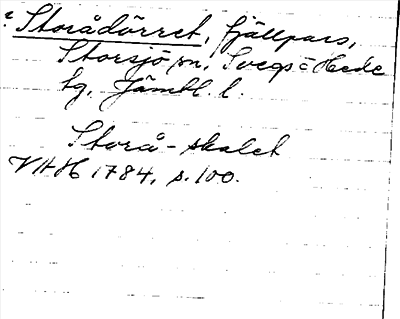 Storådörret, fjällpass,
Storsjö sn, Svegs-Hede
tg, Jämtl. l.
Storå-skalet
VHH 1784, s. 100.